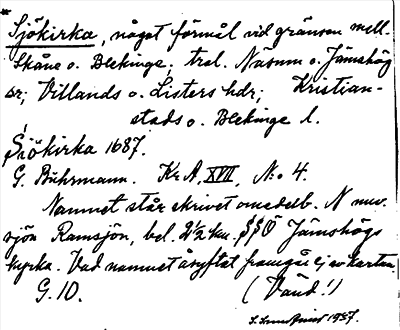 * Sjökirka, något föremål vid gränsen mell.
Skåne o. Blekinge; trol. Näsum o. Jämshög
sr; Villands o. Listers hdr; Kristian-
stads o. Blekinge l.
Sjökirka 1687.
G. Buhrmann. Kr A. XVII, No 4.
Namnet står skrivet omedelb. N nuv.
sjön Ramsjön, bel. 2 1/2 km. SSÖ Jämshögs
kyrka. Vad namnet åsyftat framgår ej av kartan.
G. 10. (Vänd!)
1957.